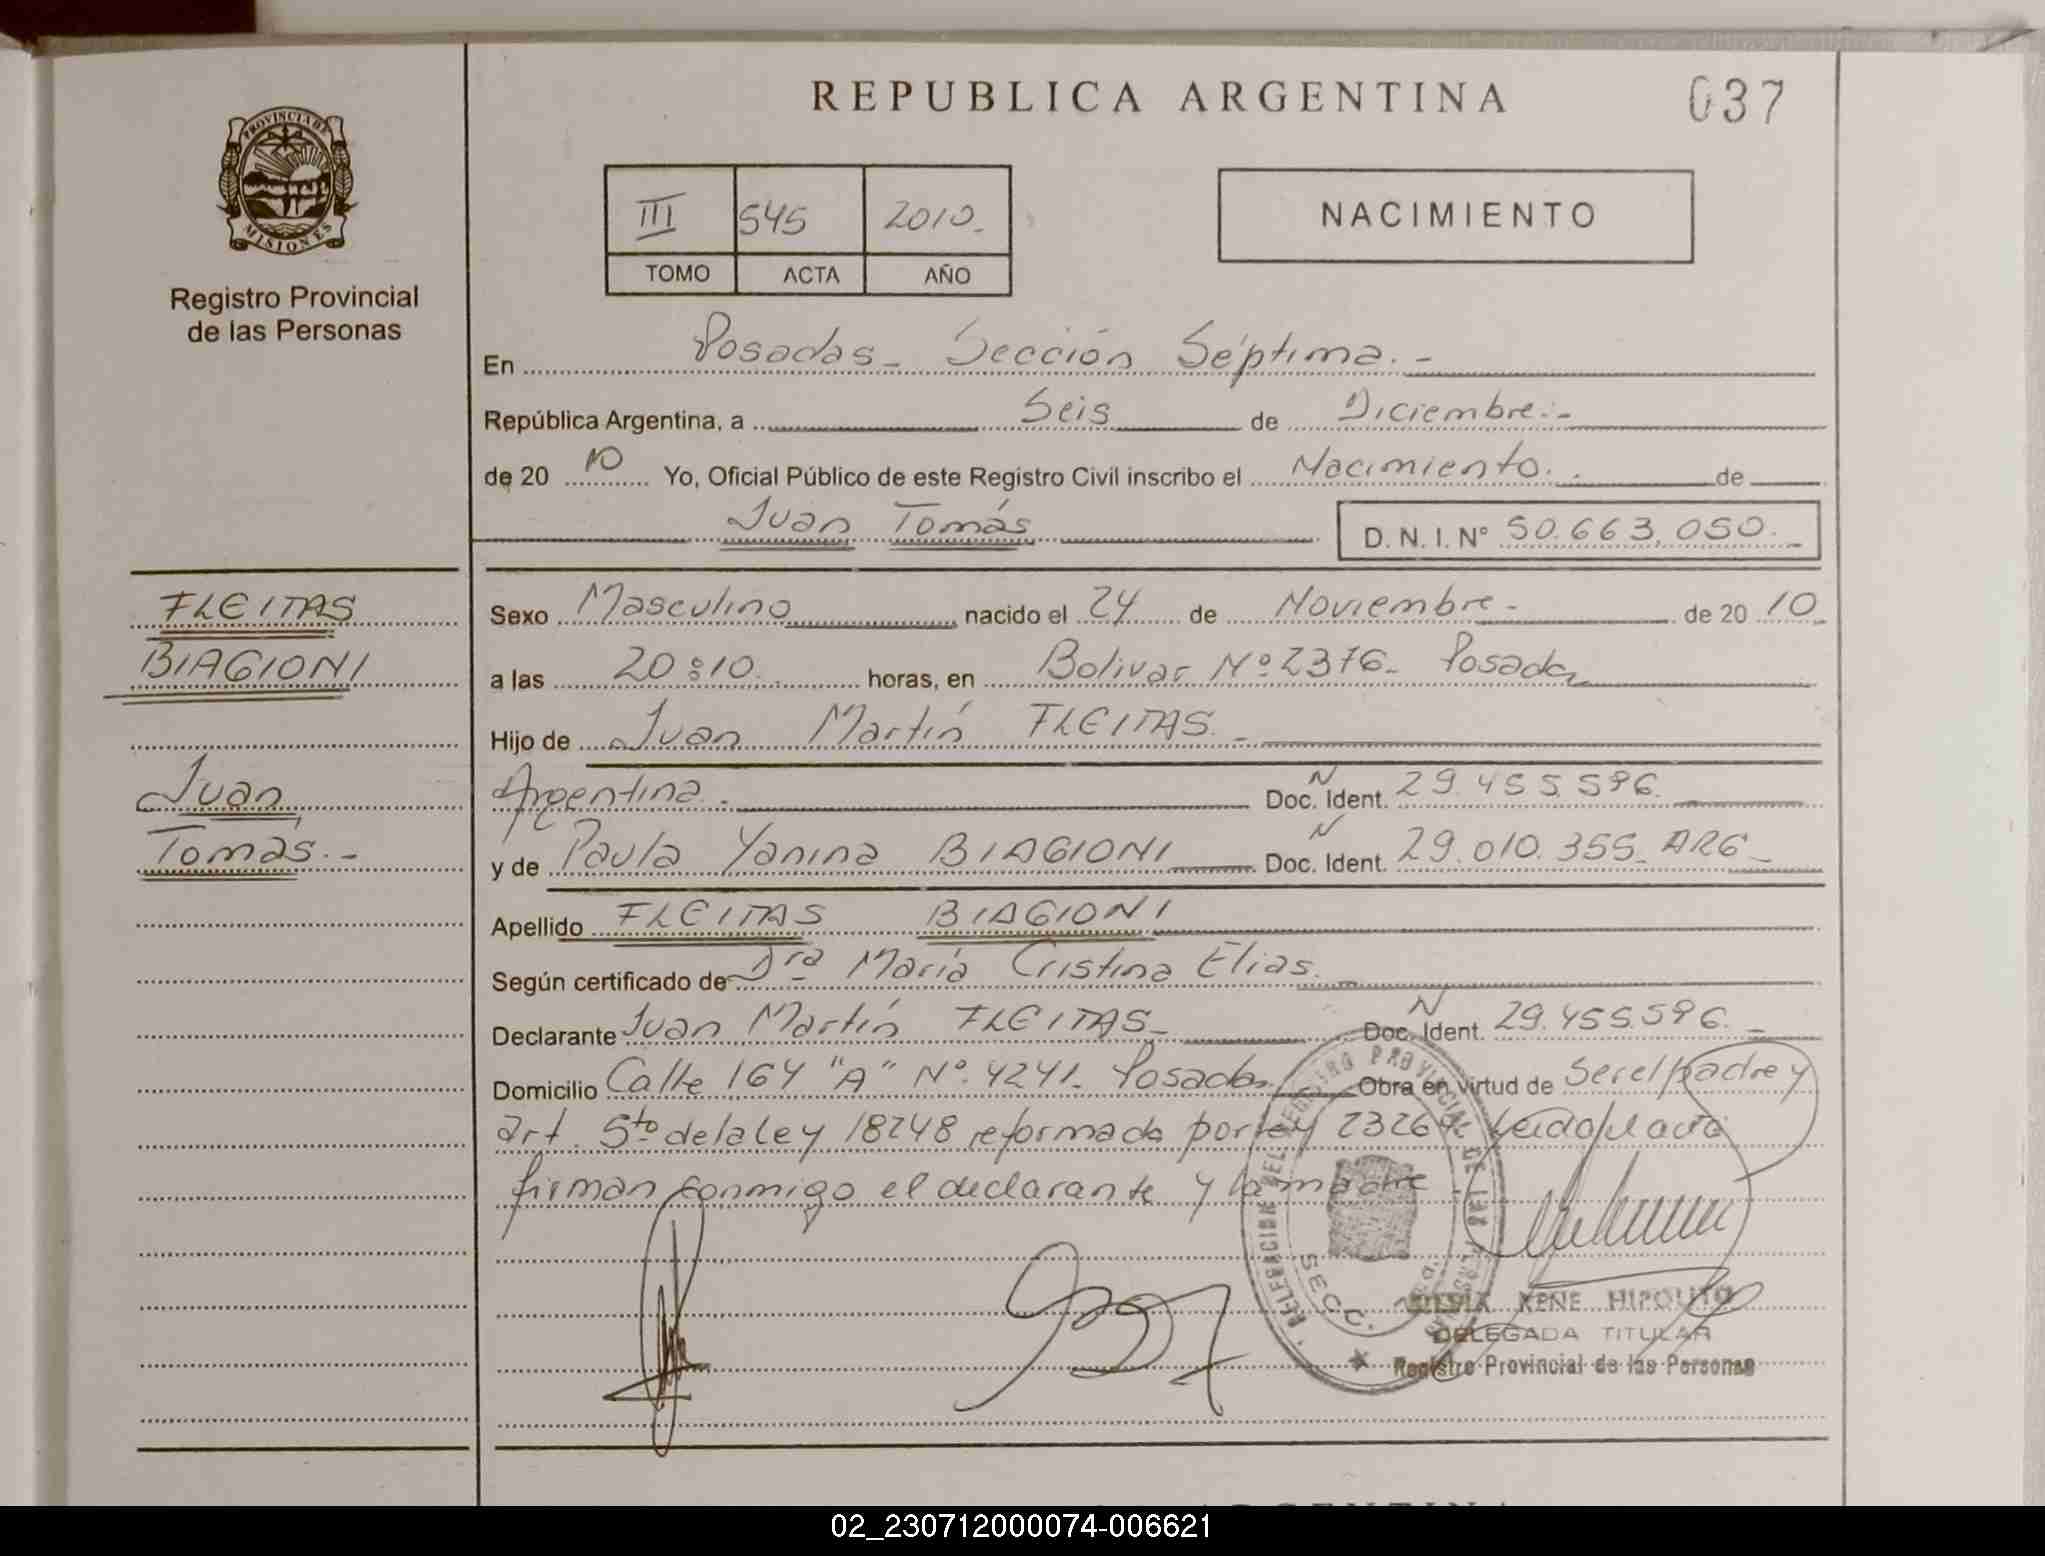 REPUBLICA ARGENTINA
037
PROVINCIA DE
MISIONES
Registro Provincial
de las Personas
III 545 2010.-
TOMO ACTA AÑO
NACIMIENTO
En Posadas- Sección Séptima.-
República Argentina, a Seis de Diciembre.-
de 20 10 Yo, Oficial Público de este Registro Civil inscribo el Nacimiento. de
Juan Tomás
D. N. I. Nº 50.663.050.-
FLEITAS
BIAGIONI
Juan
Tomás.-
Sexo Masculino nacido el 24 de Noviembre- de 20 10
a las 20:10. horas, en Bolivar Nº 2376- Posadas
Hijo de Juan Martín FLEITAS.-
Argentina.- Doc. N Ident. 29.455.596.
y de Paula Yanina BIAGIONI Doc. N Ident. 29.010.355- ARG-
Apellido FLEITAS BIAGIONI
Según certificado de Dra María Cristina Elias.-
Declarante Juan Martín FLEITAS- Doc. N Ident. 29.455.596.-
Domicilio Calle 164 "A" Nº 4241- Posadas Obra en virtud de Ser el padre y
art. 5to de la ley 18248 reformada por ley 23264- Leida el acta
firman conmigo el declarante y la madre
DELEGACION DEL REGISTRO PROVINCIAL DE LAS PERSONAS
SECC.
RENE HIPOLITO
DELEGADA TITULAR
Registro Provincial de las Personas
02_230712000074-006621